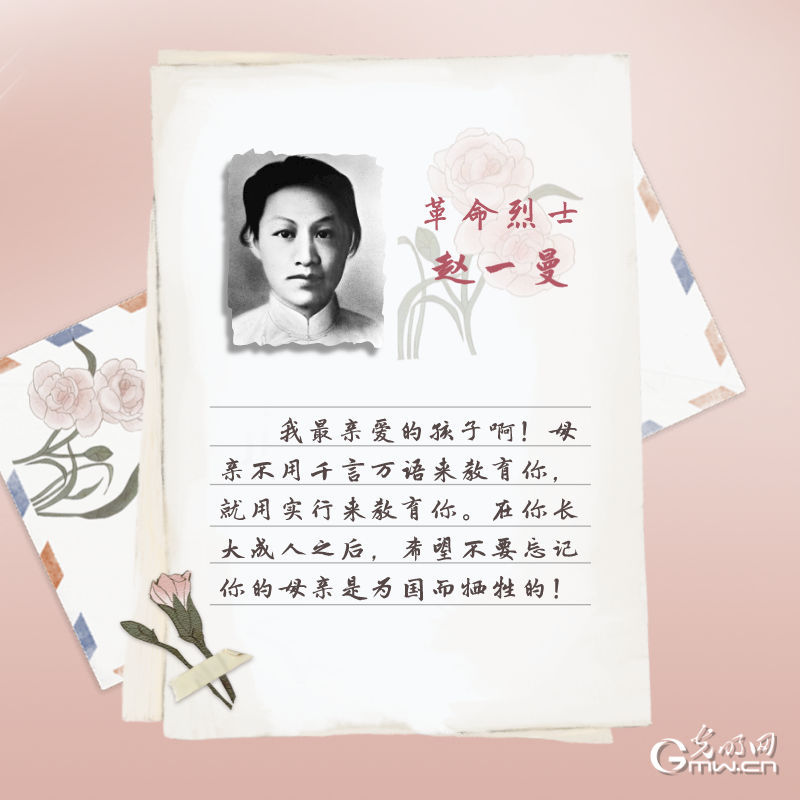 革命烈士
赵一曼
我最亲爱的孩子啊！母
亲不用千言万语来教育你，
就用实行来教育你。在你长
大成人之后，希望不要忘记
你的母亲是为国而牺牲的！
光明网
Gmw.cn